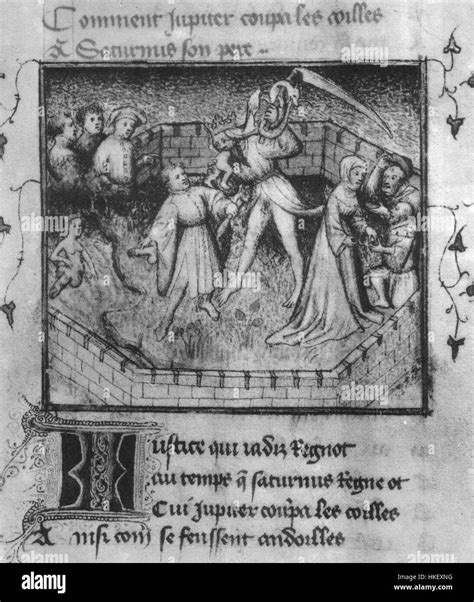 Comment Jupiter coupa les coilles
A Saturnus son pere
Justice qui iadiz Regnot
au temps q̃ saturnus Regne ot
Cui Jupiter coupa les coilles
Ainsi com se feussent andoilles
a
alamy stock photo
a alamy
Image ID: HKEXNG
www.alamy.com